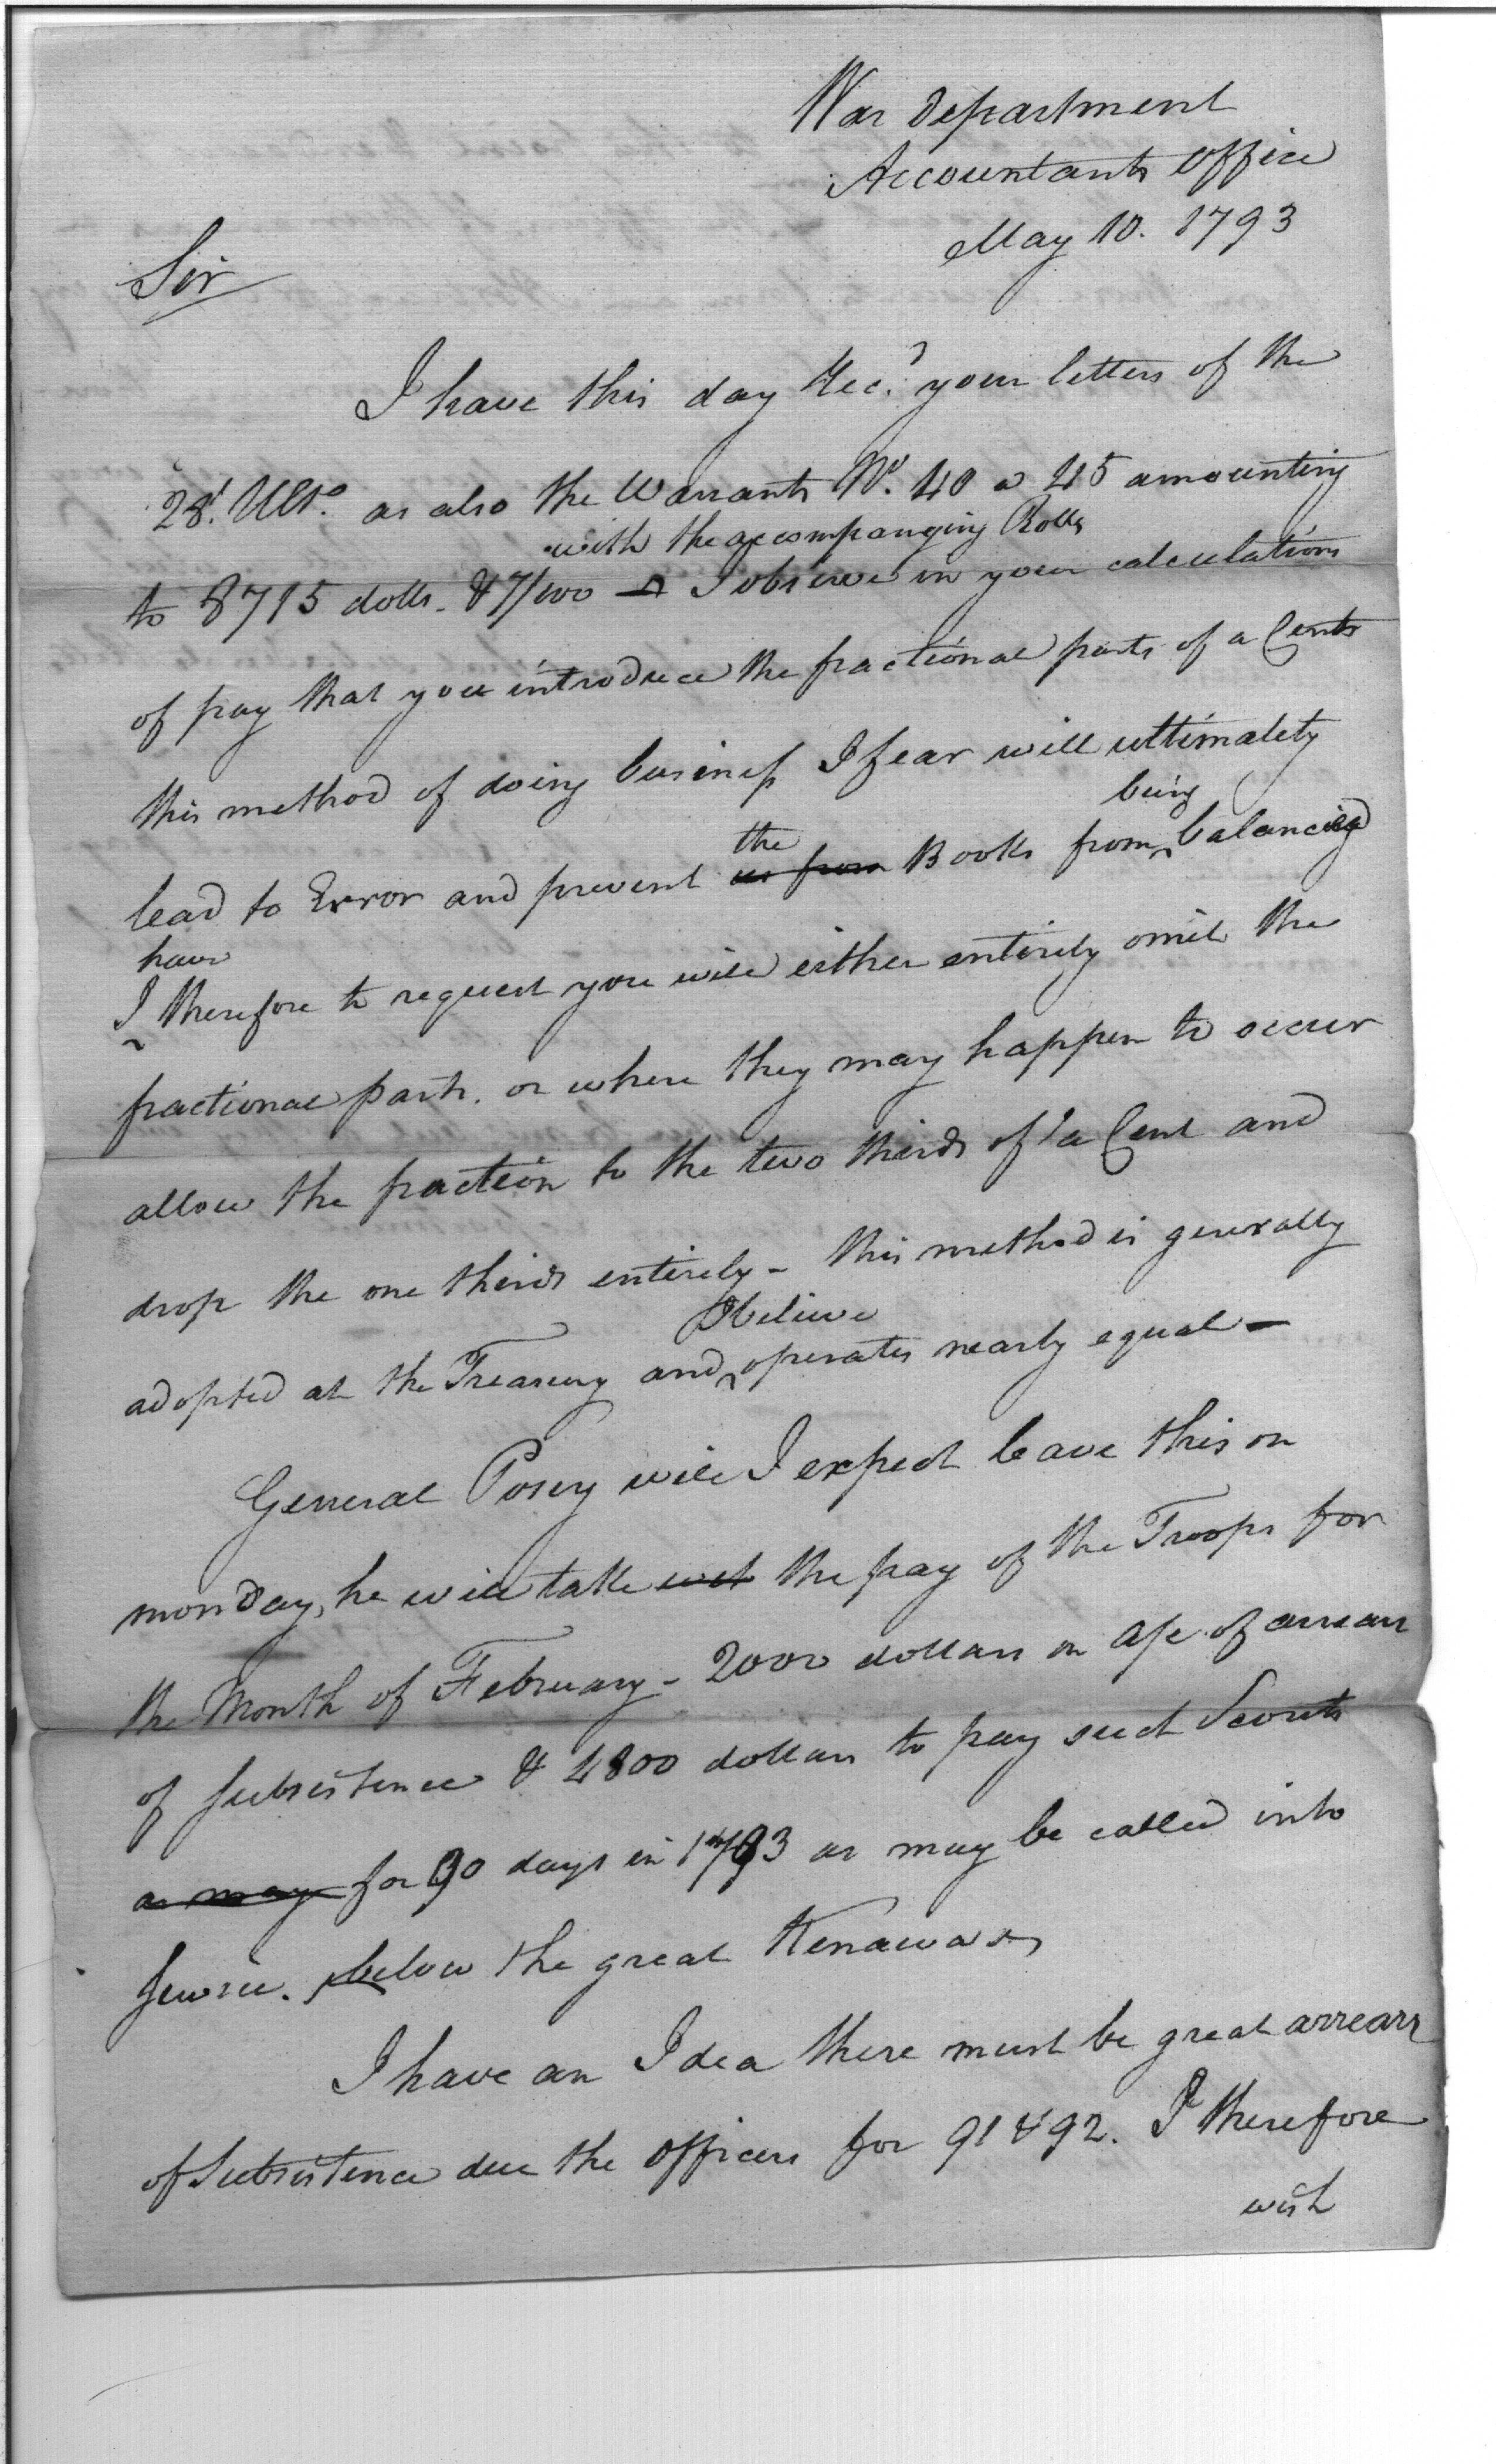 War Department
Accountants Office
May 10. 1793
Sir
I have this day Rec.d your letters of the
28.t Ulto. as also the Warrants No. 40 a 45 amounting
with the accompanying Rolls
to 8715 dolls. 87/100 — I observe in your calculations
of pay that you introduce the fractional parts of a Cents
this method of doing business I fear will ultimately
being
the
lead to Error and prevent us from Books from balancing
have
I therefore to request you will either entirely omit the
fractional parts. or where they may happen to occur
allow the fraction to the two thirds of a Cent and
drop the one thirds entirely - this method is generally
I believe
adopted at the Treasury and operates nearly equal —
General Posey will I expect leave this on
monday, he will take the pay of the Troops for
the Month of February - 2000 dollars on a/c of arrears
of subsistence & 4800 dollars to pay such Scouts
as may for 90 days in 1793 as may be called into
service. below the great Kenawas
I have an Idea there must be great arrears
of Subsistence due the officers for 91 & 92. I therefore
wish